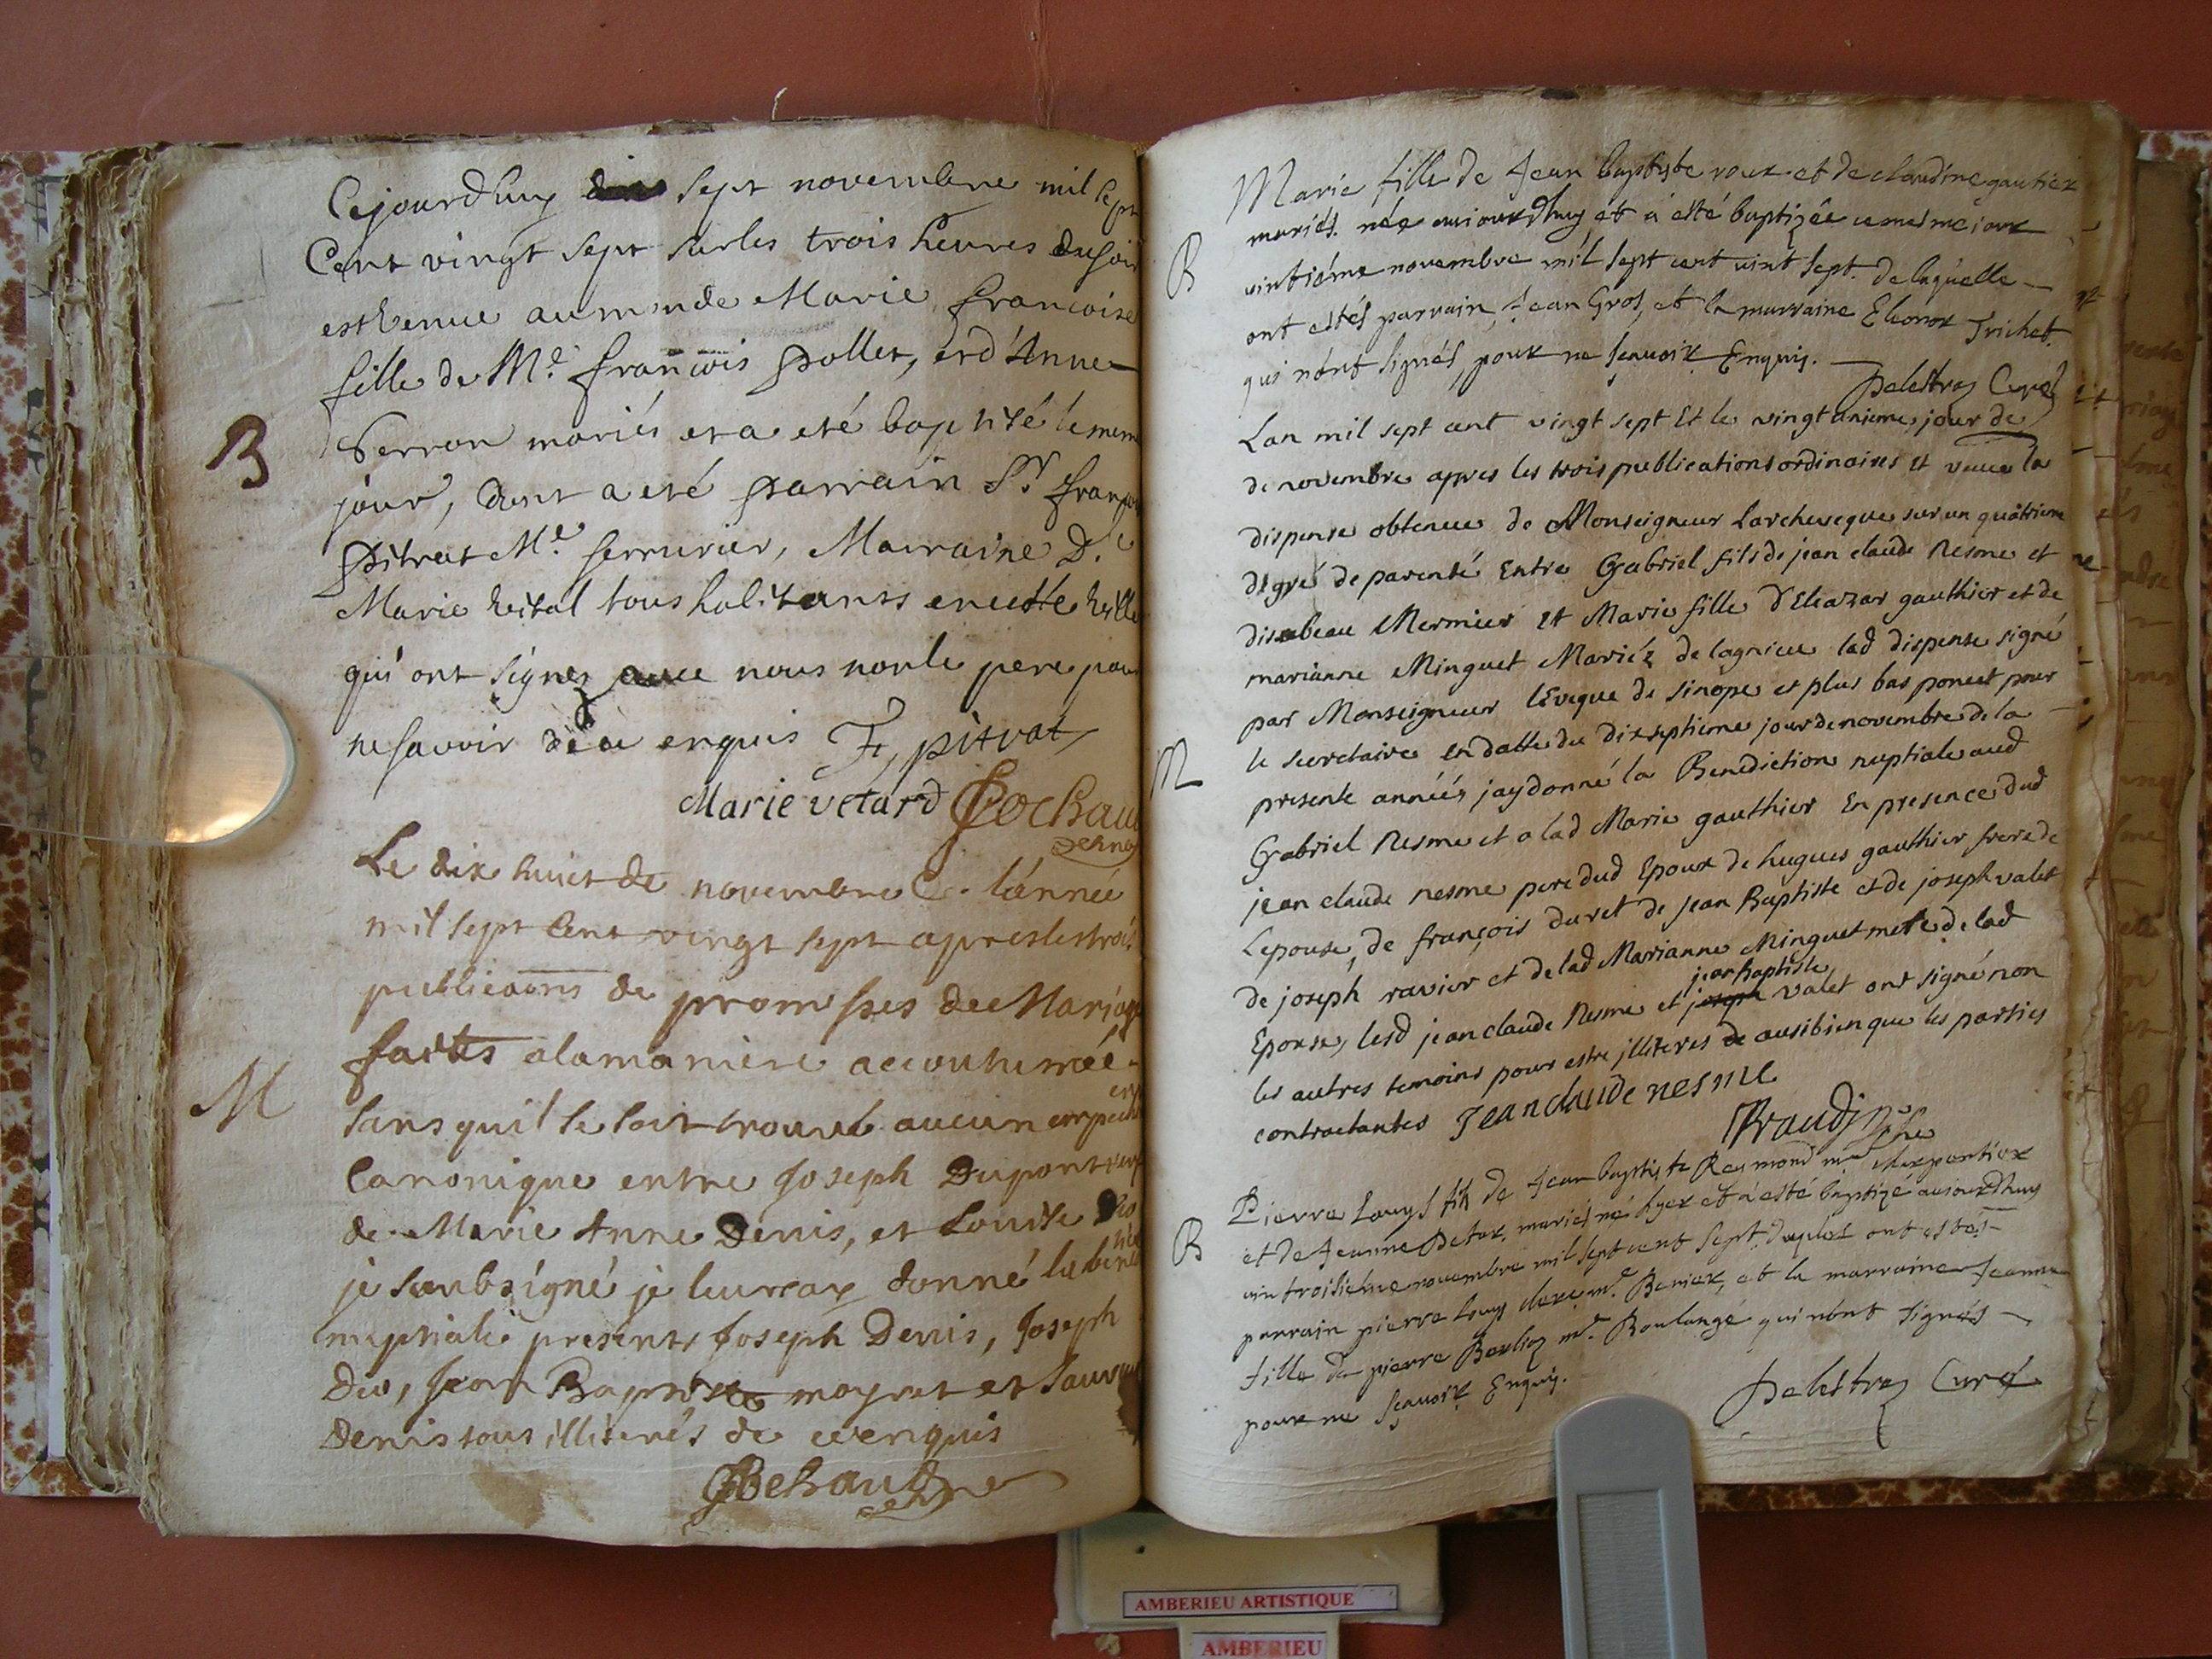 Cejourdhuy sept novembre mil sept
Cent vingt sept sur les trois heures du soir
est venue au monde Marie francoise
fille de Me. francois pollet, et d'Anne
perron mariés et a eté baptisé le meme
B
jour, dont a eté parrain Sr françois
pitrat Me. serrurier, Marraine D.
Marie vital tous habitants en cette ville
qui ont signez avec nous non le pere pour
ne savoir de ce enquis F, pitrat
Marie vetard Cochaud
Le dix huict de novembre de lánnée
mil sept Cent vingt sept apres les trois
publicaons de promesses de Mariage
faites a la maniere accoutumée
M
sans quil se soit trouvé aucun empech
Canonique entre Joseph Dupont veuf
de Marie Anne Denis, et Louise
je soubsigné je leur ay donné la bened
nuptiale presents Joseph Denis, Joseph
Duc, Jean Baptiste moynet et
Denis tous illiterés de ce enquis
Marie fille de Jean baptiste roux et de claudine gautier
mariés. née aujourdhuy et a esté baptizée ce mesme jour
B
vintiéme novembre mil sept cent vint sept. de laquelle
ont estés parrain, Jean Gros, et la marraine Eleonor Trichet.
qui nónt signés, pour ne sçavoir Enquis.
Delestraz Curé
Lan mil sept cent vingt sept Et le vingt unieme jour de
de novembre apres les trois publications ordinaires et veue la
dispense obtenue de Monseigneur Larcheveque sur un quatrieme
degré de parenté Entre Gabriel fils de jean claude Nesme et
disabeau Mermier et Marie fille d'Eleazar gauthier et de
marianne Minguet Mariéz de lagnieu lad dispense signé
par Monseigneur lEveque de Sinope et plus bas poncet pour
le secretaire en datte du dixseptieme jour de novembre de la
M
presente annéé, jay donné la Benediction nuptiale aud
Gabriel Nesme et a lad Marie gauthier En presence dud
jean claude nesme pere dud Epoux de hugues gauthier frere de
Lepouse, de françois duret de jean Baptiste et de joseph valet
de joseph ravier et de lad Marianne Minguet mere de lad
jean baptiste
Epouse, lesd jean claude Nesme et joseph valet ont signé non
les autres temoins pour estre jlliteres de ausibien que les parties
contractantes Jean claude nesme
Pierre Louys fils de Jean baptiste Raymond me charpentier
et de Jeanne Detox. mariés né hyer et a esté baptizé aujourdhuy
B
vintroisieme novembre mil sept cent sept. duquel ont estés
parrain pierre Louys me. et la marraine Jeanne
fille de pierre me. Boulangé qui nónt signés
pour ne sçavoir Enquis.
Delestraz Curé
AMBERIEU ARTISTIQUE
AMBERIEU